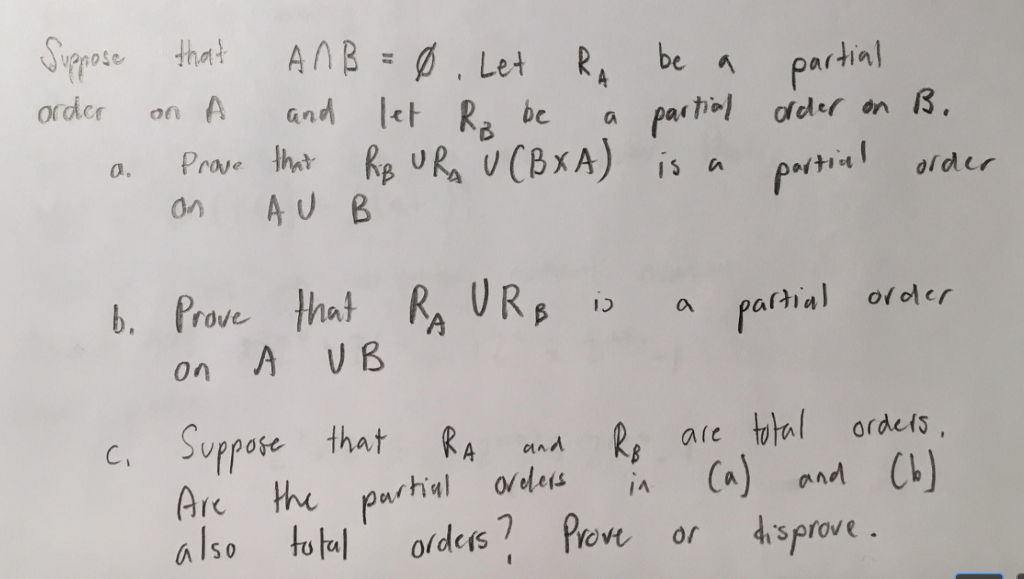 Suppose that A∩B = Ø. Let R_A be a partial
order on A and let R_B be a partial order on B.
a. Prove that R_B ∪ R_A ∪ (B×A) is a partial order
on A ∪ B
b. Prove that R_A ∪ R_B is a partial order
on A ∪ B
c. Suppose that R_A and R_B are total orders.
Are the partial orders in (a) and (b)
also total orders? Prove or disprove.